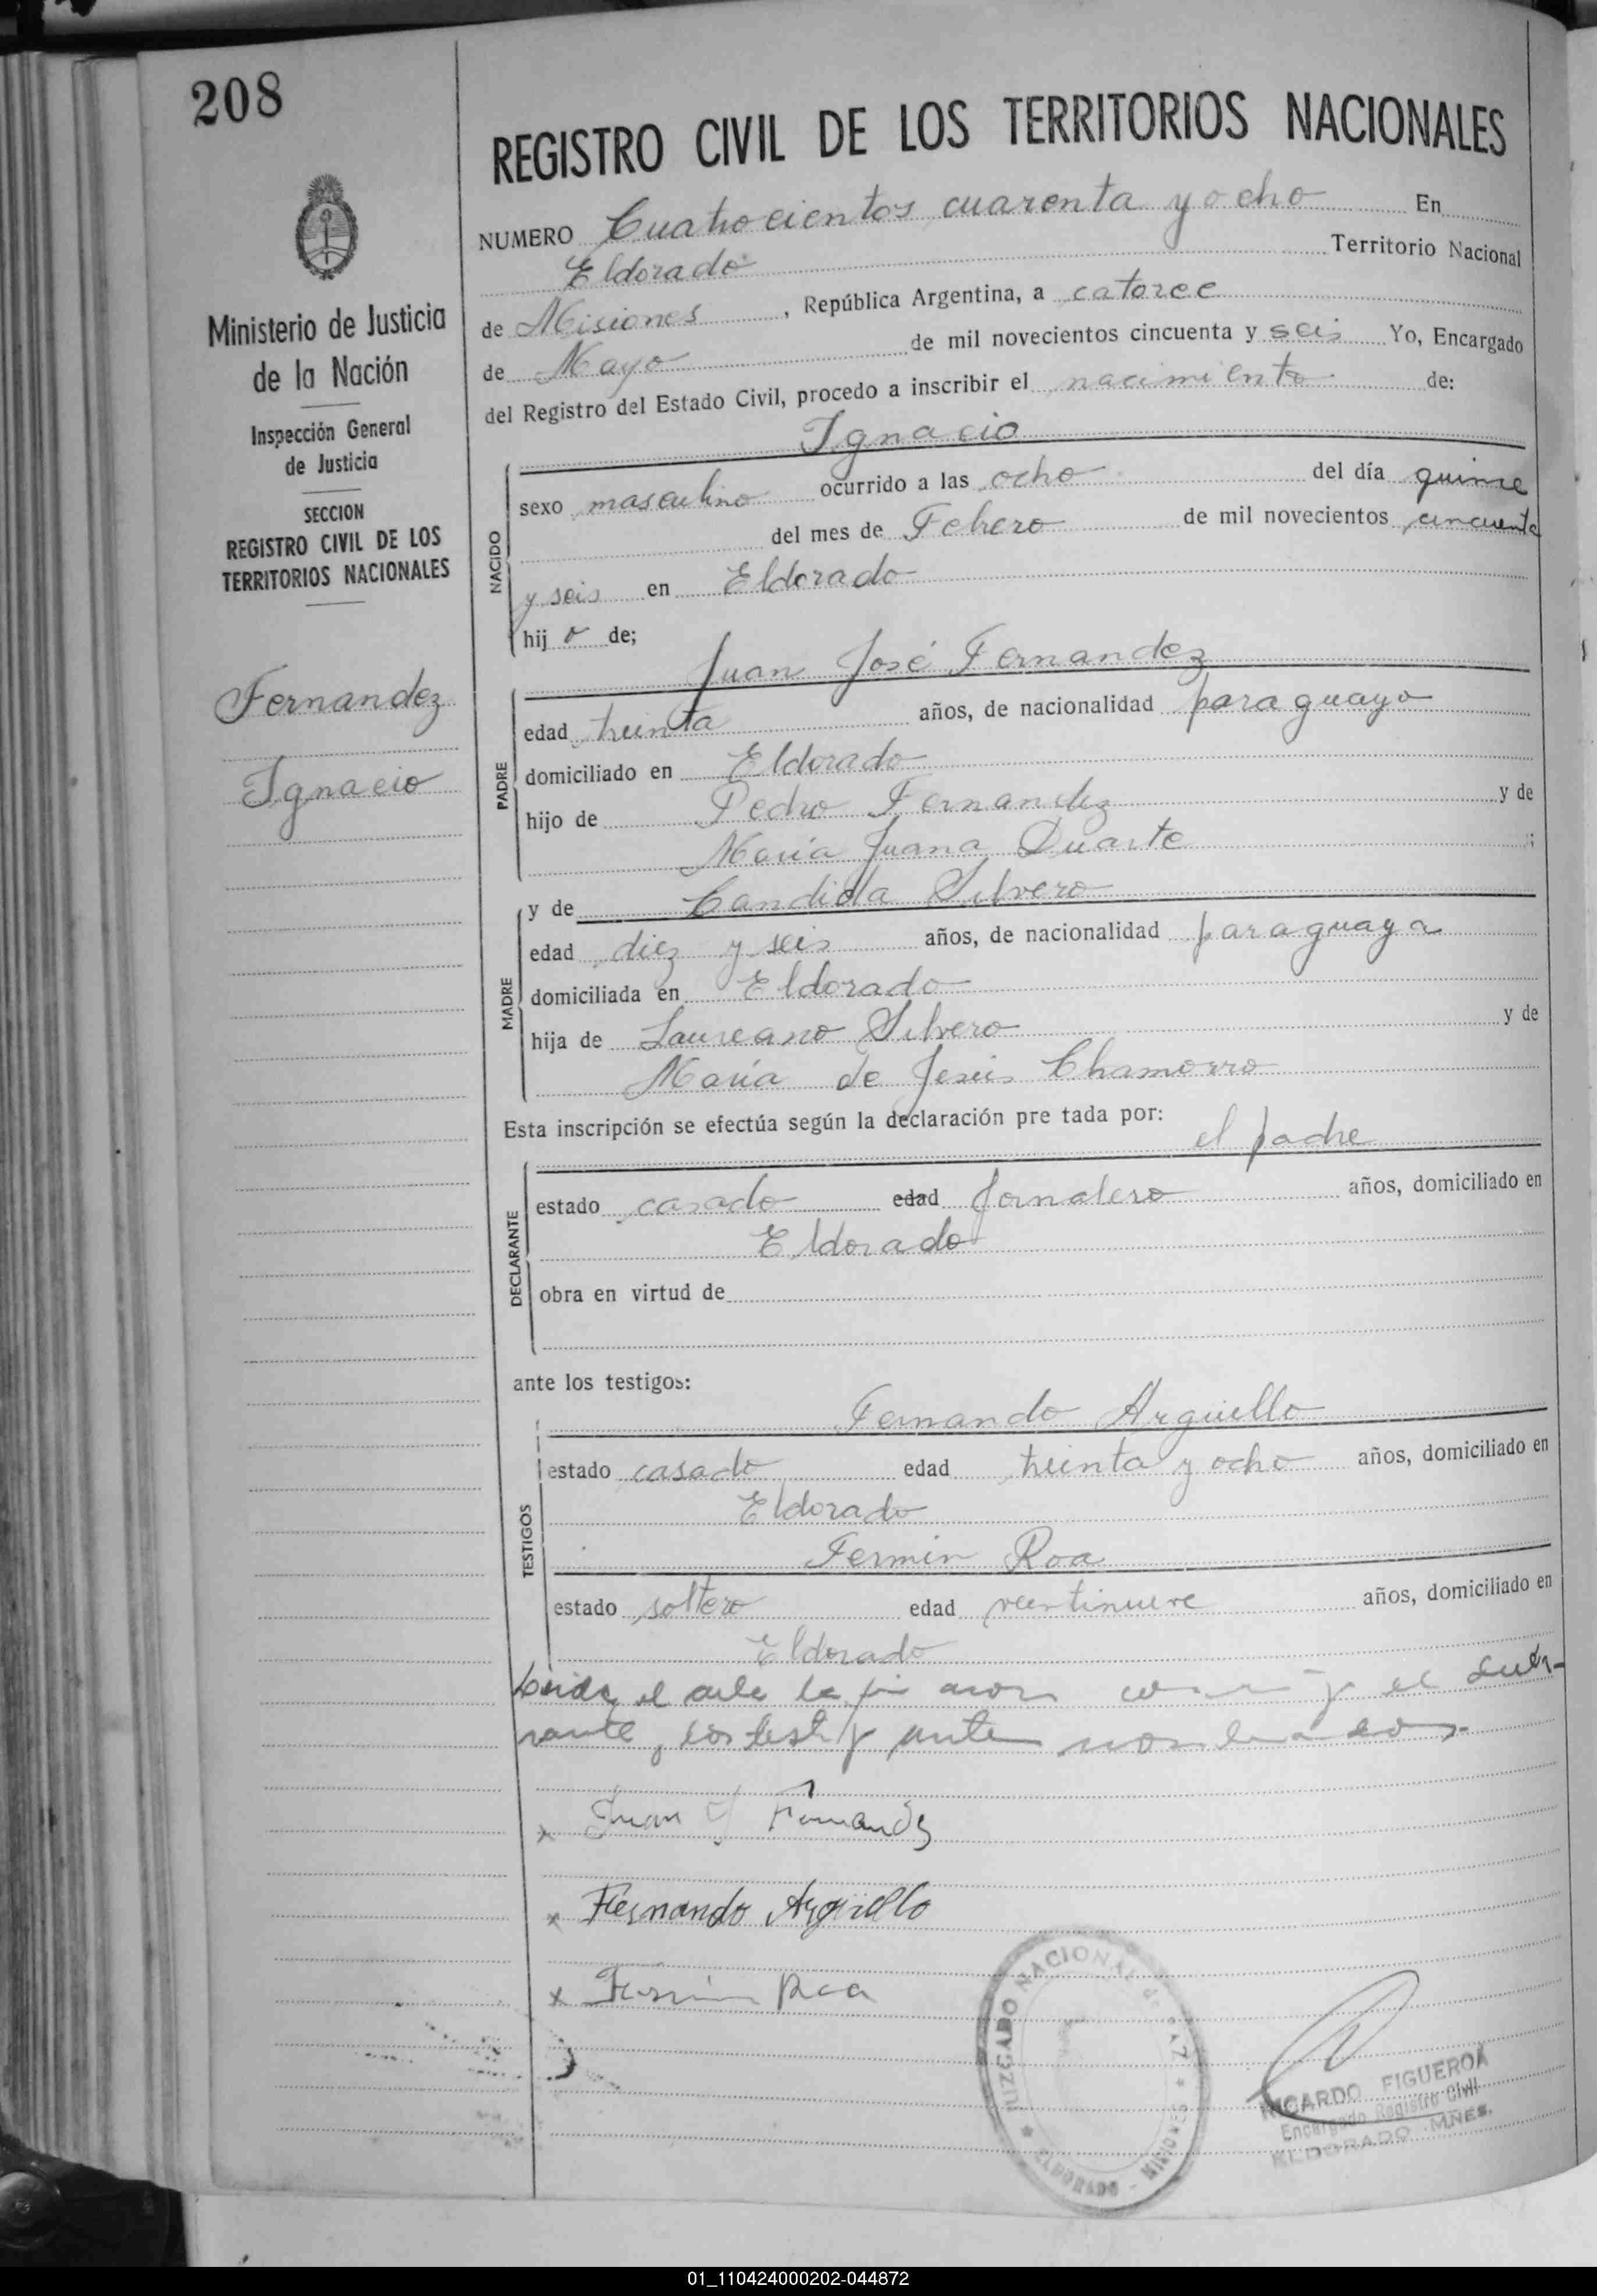 208
REGISTRO CIVIL DE LOS TERRITORIOS NACIONALES
NUMERO Cuatrocientos cuarenta y ocho En
Eldorado Territorio Nacional
de Misiones, República Argentina, a catorce
de Mayo de mil novecientos cincuenta y seis Yo, Encargado
del Registro del Estado Civil, procedo a inscribir el nacimiento de:
Ministerio de Justicia
de la Nación
Inspección General
de Justicia
SECCION
REGISTRO CIVIL DE LOS
TERRITORIOS NACIONALES
Fernandez
Ignacio
Ignacio
NACIDO
sexo masculino ocurrido a las ocho del día quince
del mes de Febrero de mil novecientos cincuenta
y seis en Eldorado
hijo de;
Juan José Fernandez
PADRE
edad treinta años, de nacionalidad paraguayo
domiciliado en Eldorado
hijo de Pedro Fernandez y de
María Juana Duarte ;
MADRE
y de Candida Silvero
edad diez y seis años, de nacionalidad paraguaya
domiciliada en Eldorado
hija de Laureano Silvero y de
María de Jesús Chamorro
Esta inscripción se efectúa según la declaración pre tada por:
el padre
DECLARANTE
estado casado edad Jornalero años, domiciliado en
Eldorado
obra en virtud de
ante los testigos:
TESTIGOS
Fernando Argüello
estado casado edad treinta y ocho años, domiciliado en
Eldorado
Fermín Roa
estado soltero edad veintinueve años, domiciliado en
Eldorado
el
x Juan J Fernandez
x Fernando Argüello
x Fermín Roa
JUZGADO NACIONAL de PAZ
* ELDORADO - MISIONES *
RICARDO FIGUEROA
Encargado Registro Civil
ELDORADO - MNES.
01_110424000202-044872